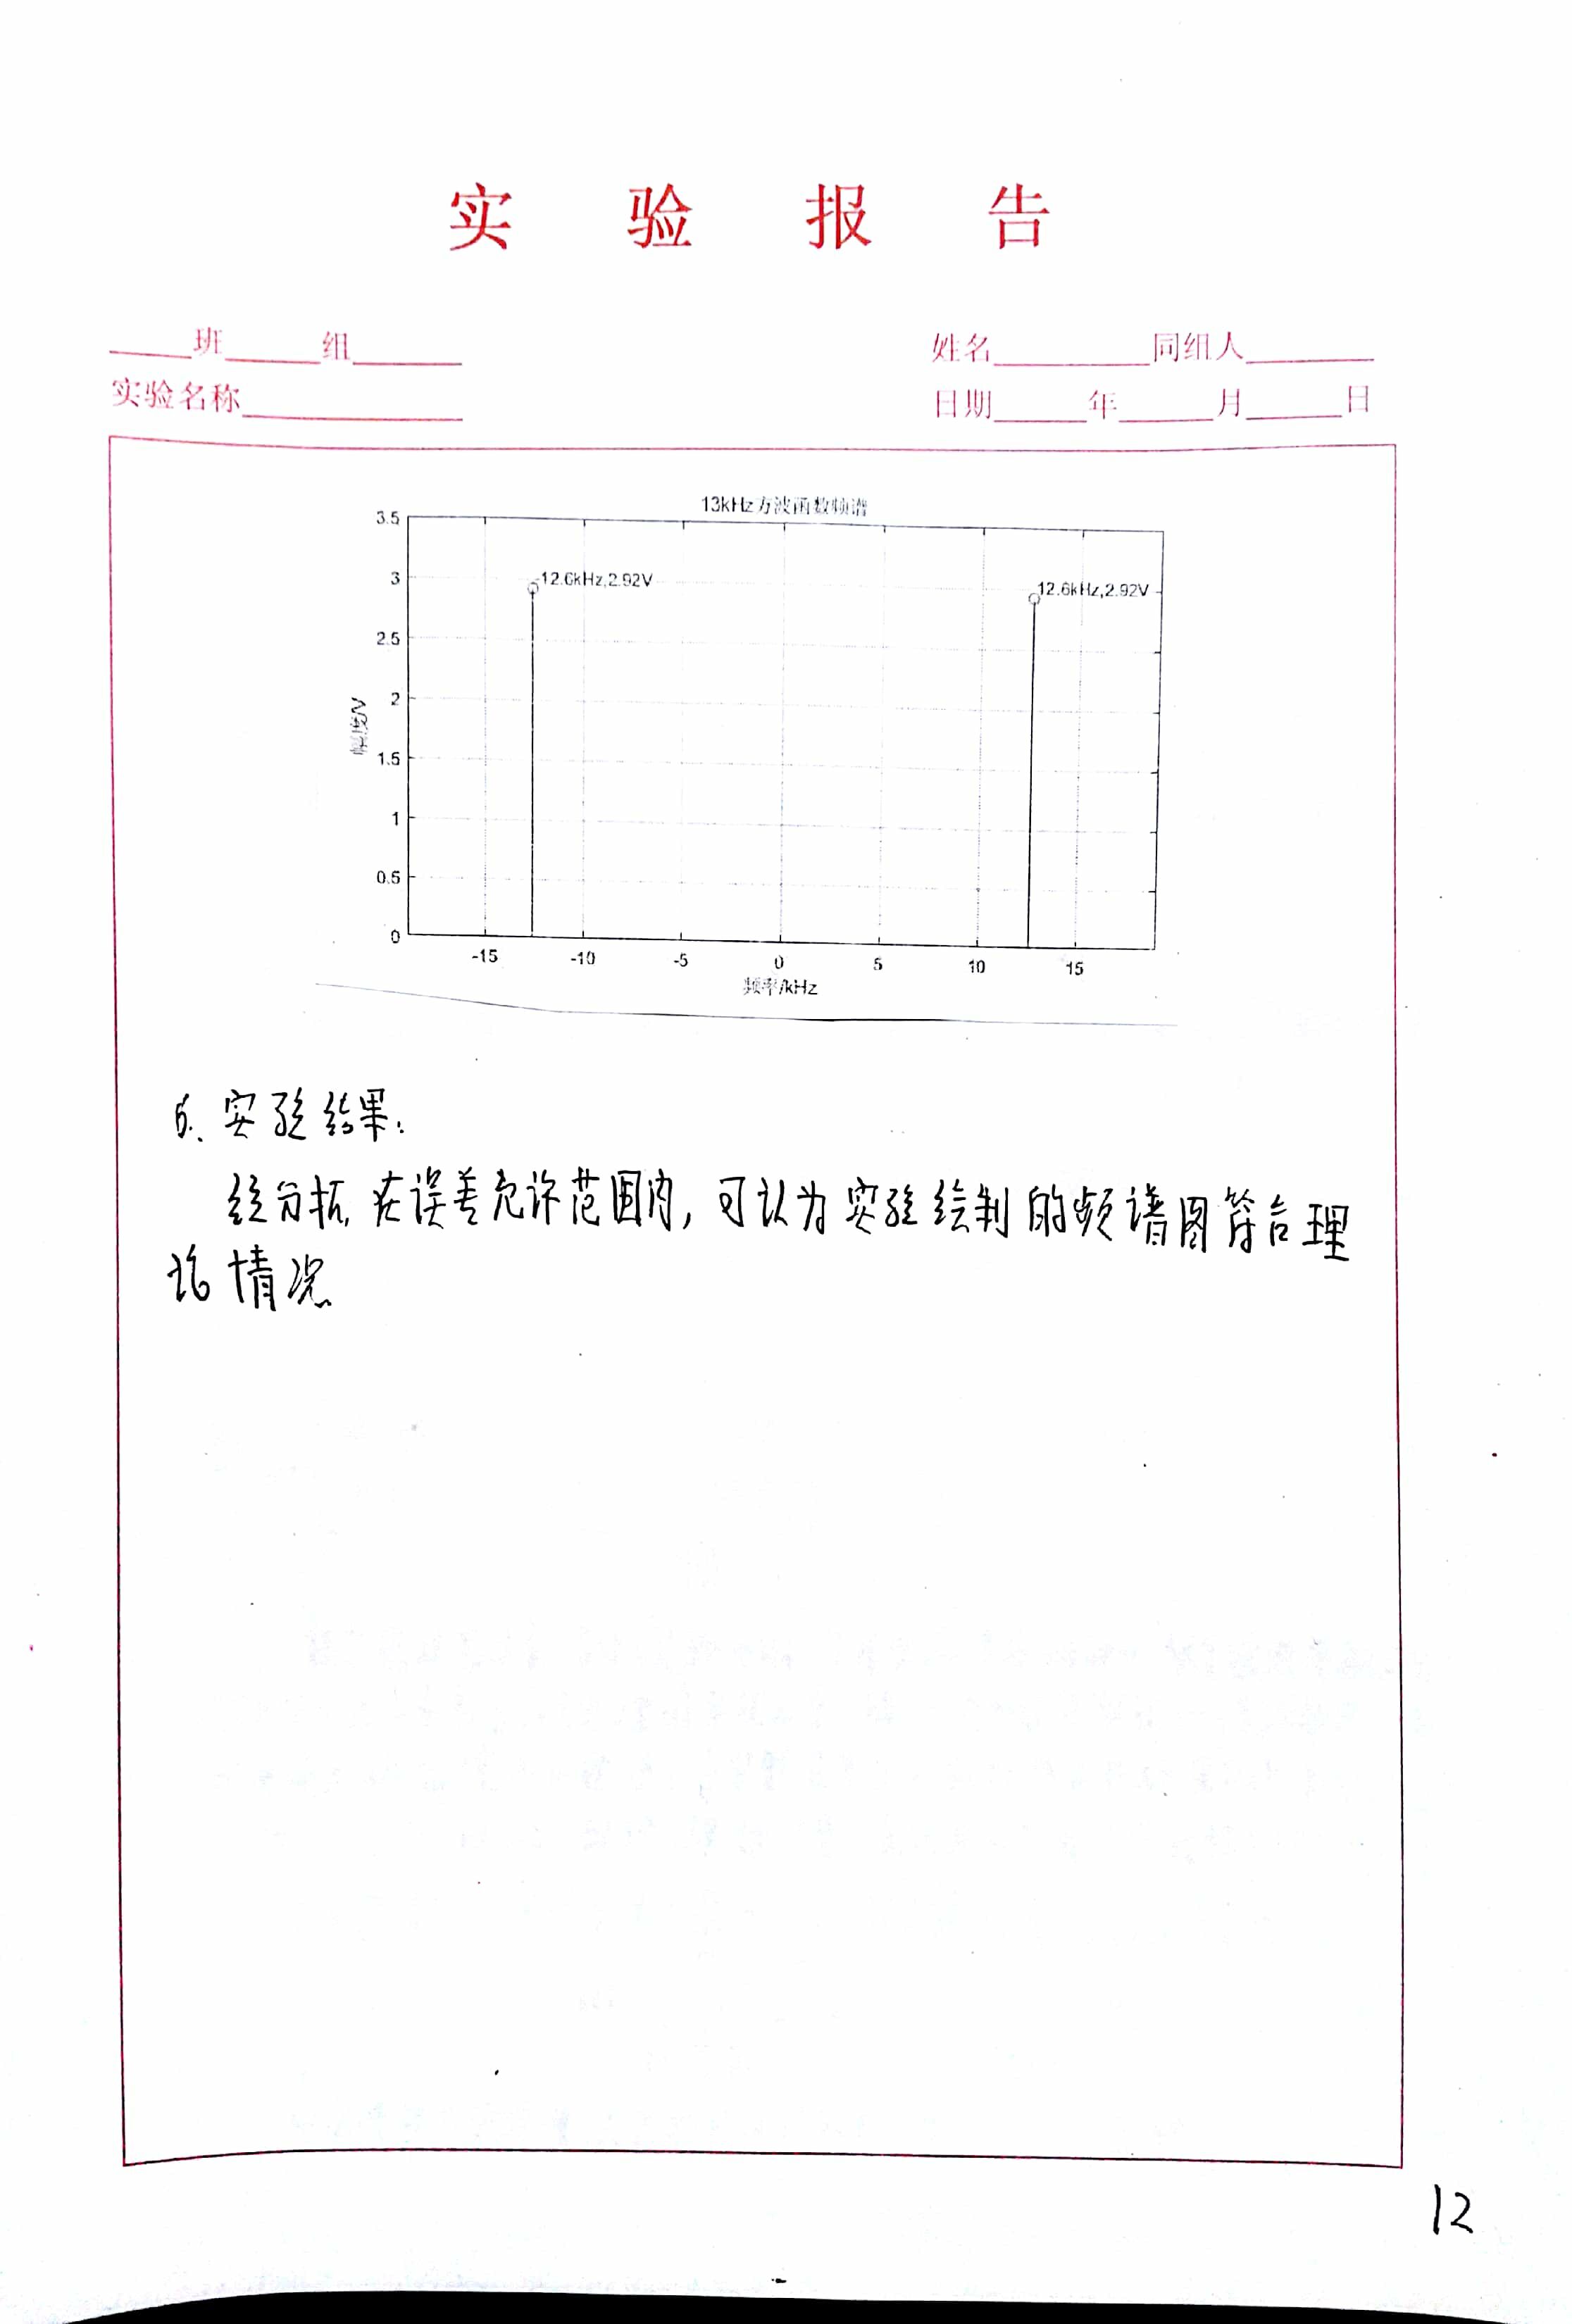 实 验 报 告
班 组 姓名 同组人
实验名称 日期 年 月 日
13kHz方波函数频谱
3.5
3
2.5
2
1.5
1
0.5
0
-12.6kHz,2.92V
12.6kHz,2.92V
幅度/V
-15 -10 -5 0 5 10 15
频率/kHz
6. 实验结果:
经分析, 在误差允许范围内, 可认为实验绘制的频谱图符合理
论情况
12